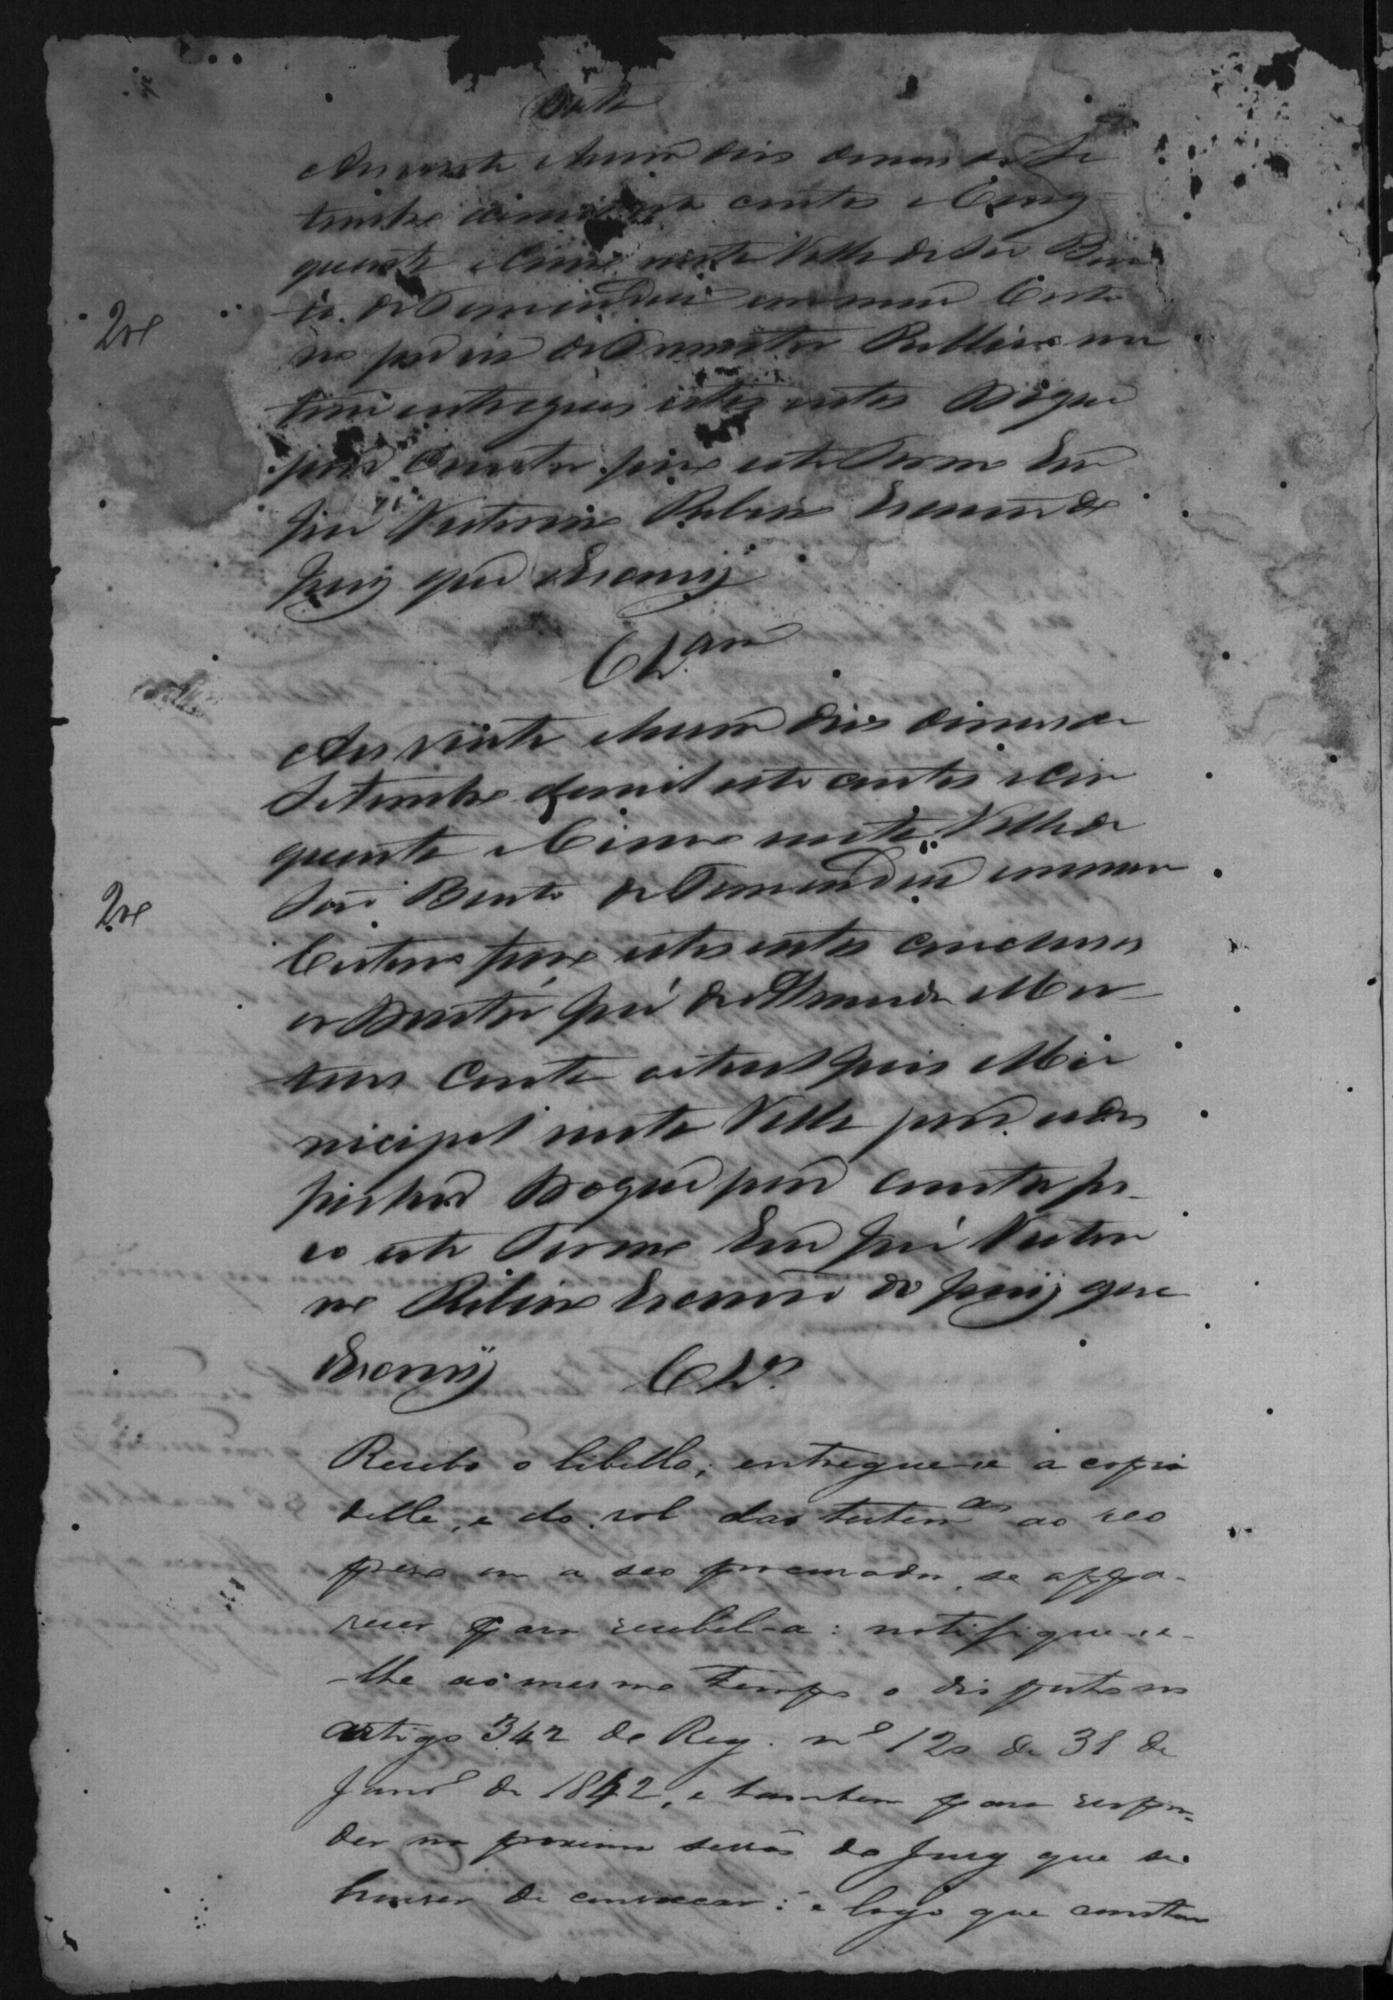 Data
Aos vinte e hum dias do mes de Se
tembro de mil oito centos e Cinq
quenta e Cinco nesta Villa de São Ben
to de Tamanduá em meu Carto
rio por do Promotor Publico me
forão entregues estes autos Do que
para Constar fiz este Termo Eu
José Victorino Ribeiro Escrivão do
Jury que escrevy
Clsam
Aos vinte e hum dias do mes de
Setembro de mil oito centos e cin
quenta e Cinco nesta Villa de
São Bento de Tamanduá em meu
Cartorio faço estes autos conclusos
ao Doutor José de Mar
tins actual Juis Mu
nicipal nesta Villa para o des
pachar Do que para constar fa
ço este Termo Eu José Victori
no Ribeiro Escrivão do Jury que
escrevy Clsº
Recebo o libello; entregue-se a copia
delle, e do rol das testemas ao reo
preso ou a seo procurador, se appa-
recer para recebel-a: notifique-se-
-lhe ao mesmo tempo o disposto no
artigo 342 do Reg. nº 120 de 31 de
Janrº de 1842, e tambem para respon-
der na proxima sessão do Jury que se
houver de convocar: e logo que conste
2re
2re